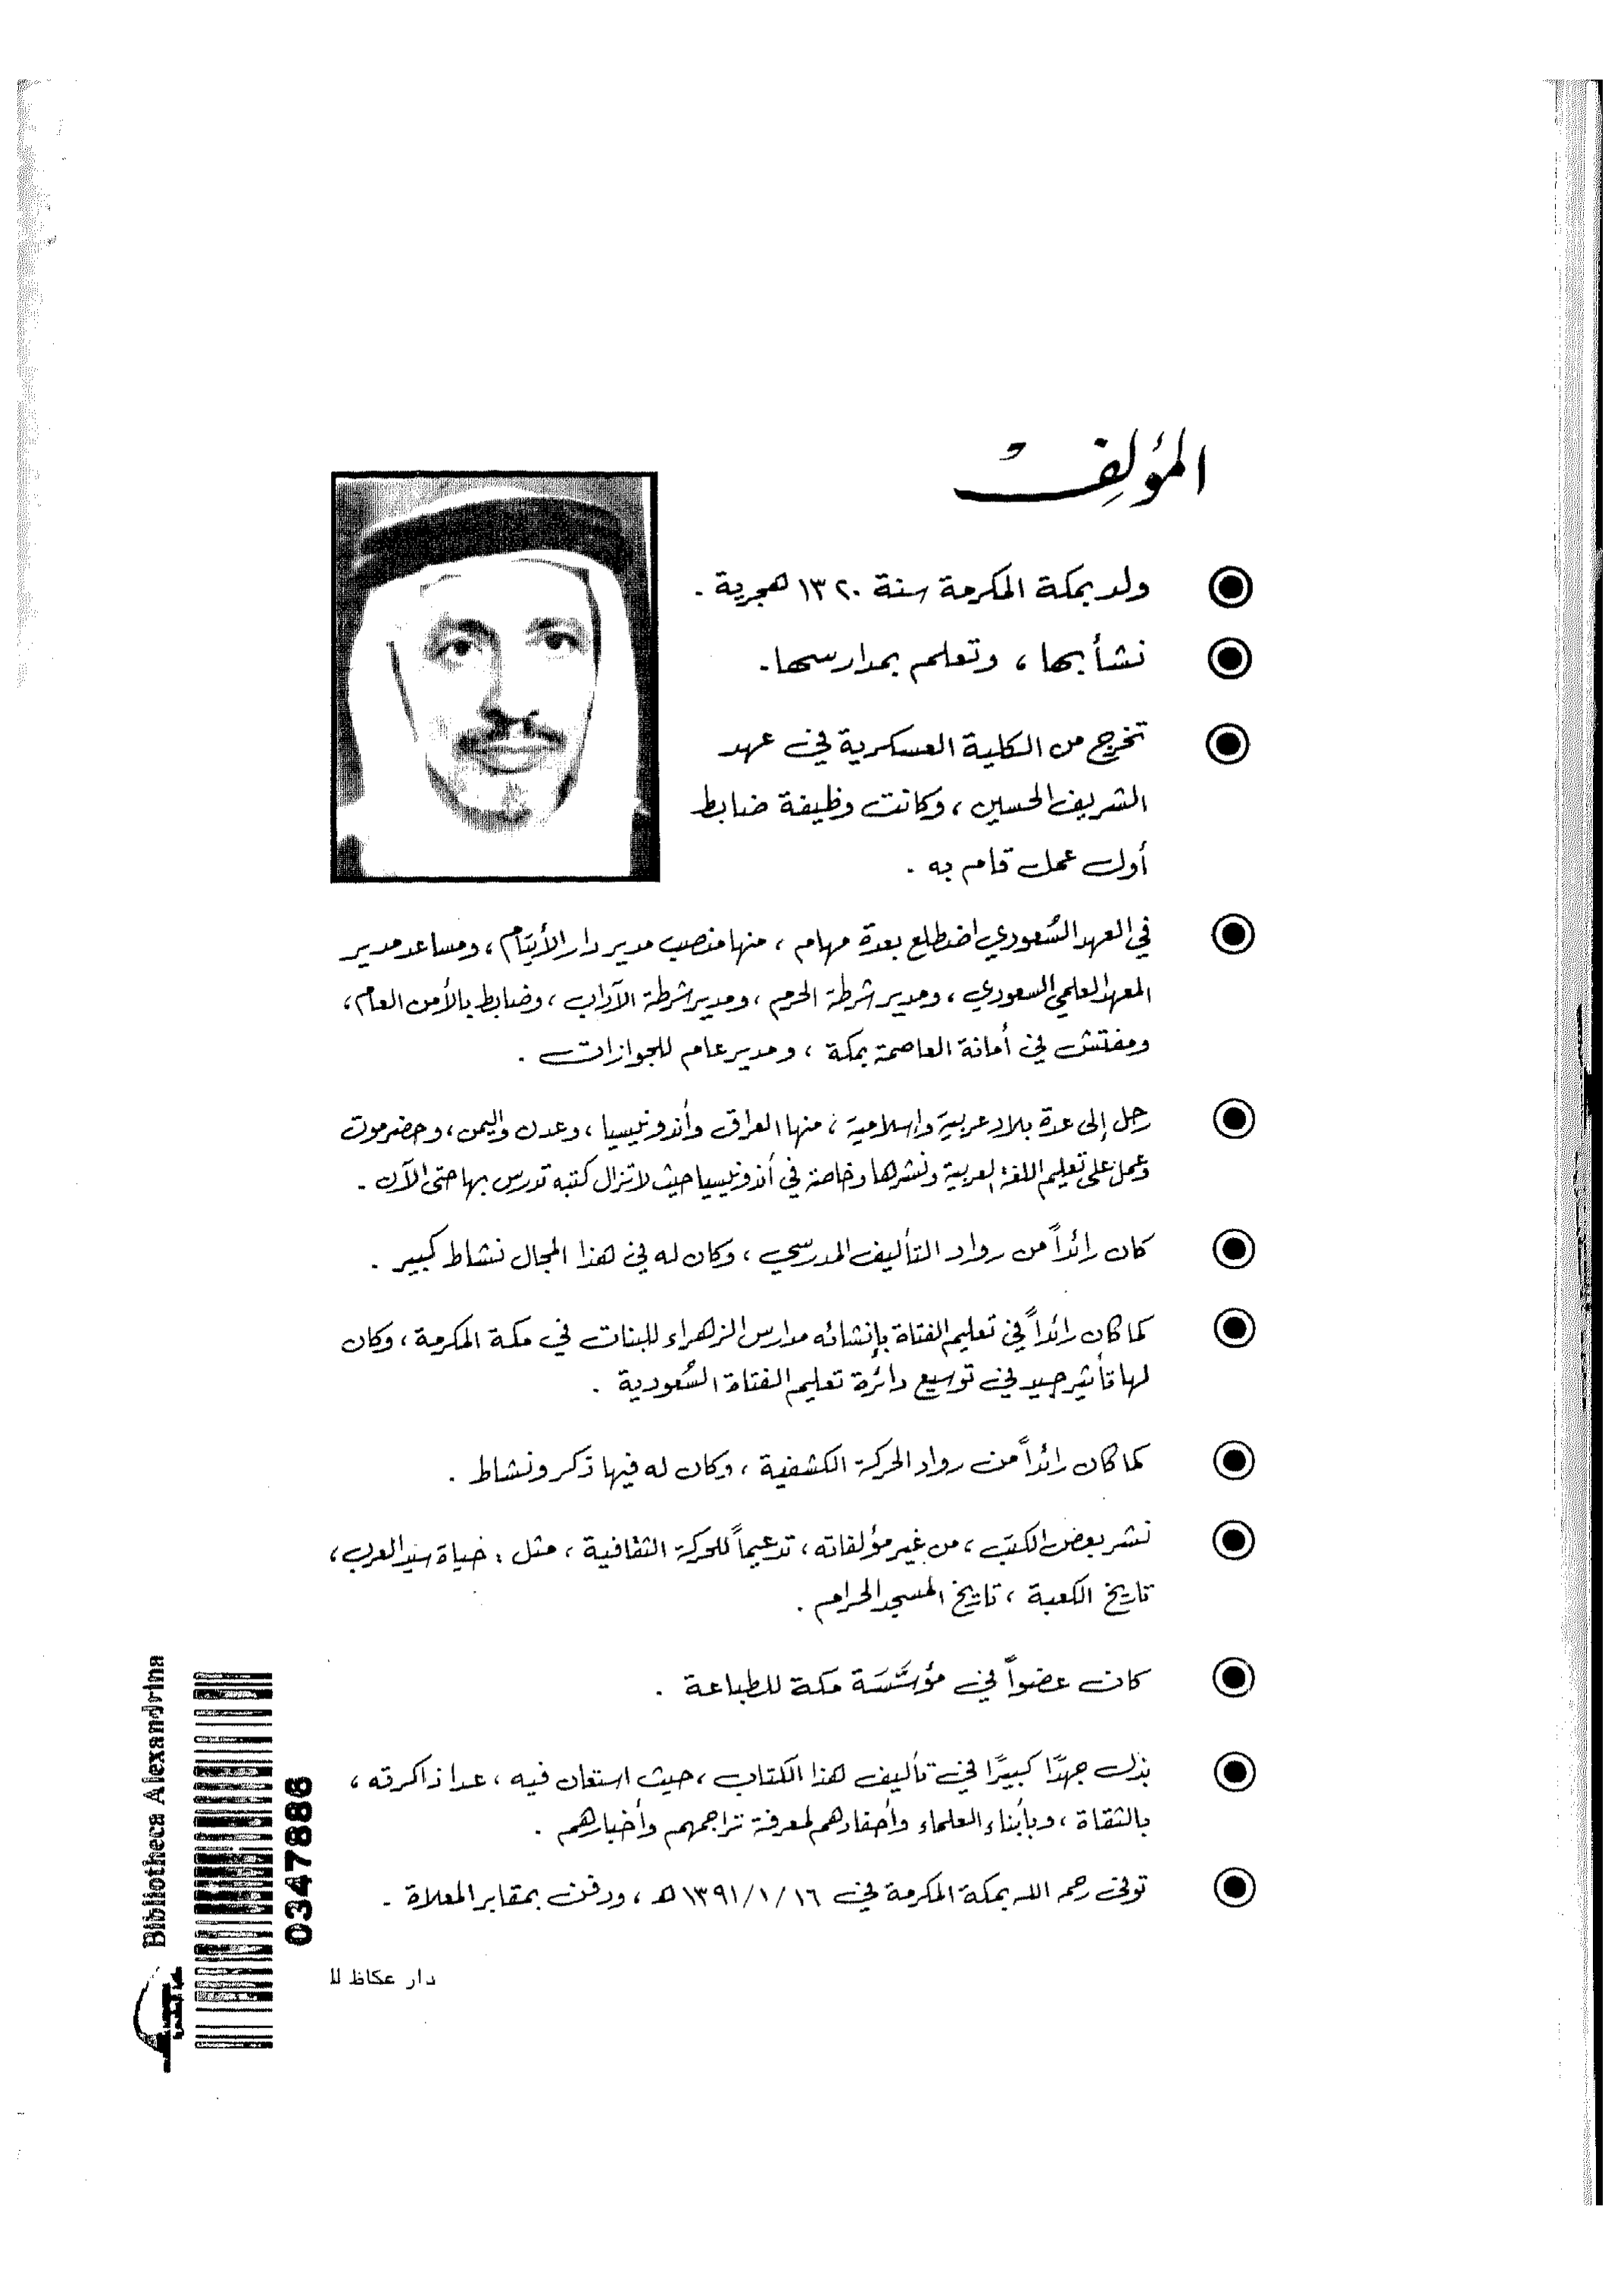 المؤلِفْ
ولد بمكة المكرمة سنة ١٣٢٠ هجرية .
نشأ بها ، وتعلم بمدارسها .
تخرج من الكلية العسكرية في عهد
الشريف الحسين ، وكانت وظيفة ضابط
أول عمل قام به .
في العهد السُعودي اضطلع بعدة مهام ، منها منصب مدير دار الأيتام ، ومساعد مدير
المعهد العلمي السعودي ، ومدير شرطة الحرم ، ومدير شرطة الآداب ، وضابط بالأمن العام ،
ومفتش في أمانة العاصمة بمكة ، ومدير عام للجوازات .
رحل إلى عدة بلاد عربية وإسلامية ، منها العراق وأندونيسيا ، وعدن واليمن ، وحضرموت
وعمل على تعليم اللغة العربية ونشرها وخاصة في أندونيسيا حيث لا تزال كتبه تدرس بها حتى الآن .
كان رائداً من رواد التأليف المدرسي ، وكان له في هذا المجال نشاط كبير .
كما كان رائداً في تعليم الفتاة بإنشائه مدارس الزهراء للبنات في مكة المكرمة ، وكان
لها تأثير جيد في توسيع دائرة تعليم الفتاة السُعودية .
كما كان رائداً من رواد الحركة الكشفية ، وكان له فيها ذكر ونشاط .
نشر بعض الكتب ، من غير مؤلفاته ، تدعيماً للحركة الثقافية ، مثل : حياة سيد العرب ،
تاريخ الكعبة ، تاريخ المسجد الحرام .
كان عضواً في مؤسَّسَة مكة للطباعة .
بذل جهدًا كبيرًا في تأليف هذا الكتاب ، حيث استعان فيه ، عدا ذاكرته ،
بالثقاة ، وبأبناء العلماء وأحفادهم لمعرفة تراجمهم وأخبارهم .
توفى رحمه الله بمكة المكرمة في ١٣٩١/١/١٦ هـ ، ودفن بمقابر المعلاة .
دار عكاظ للـ
Bibliotheca Alexandrina
0347886